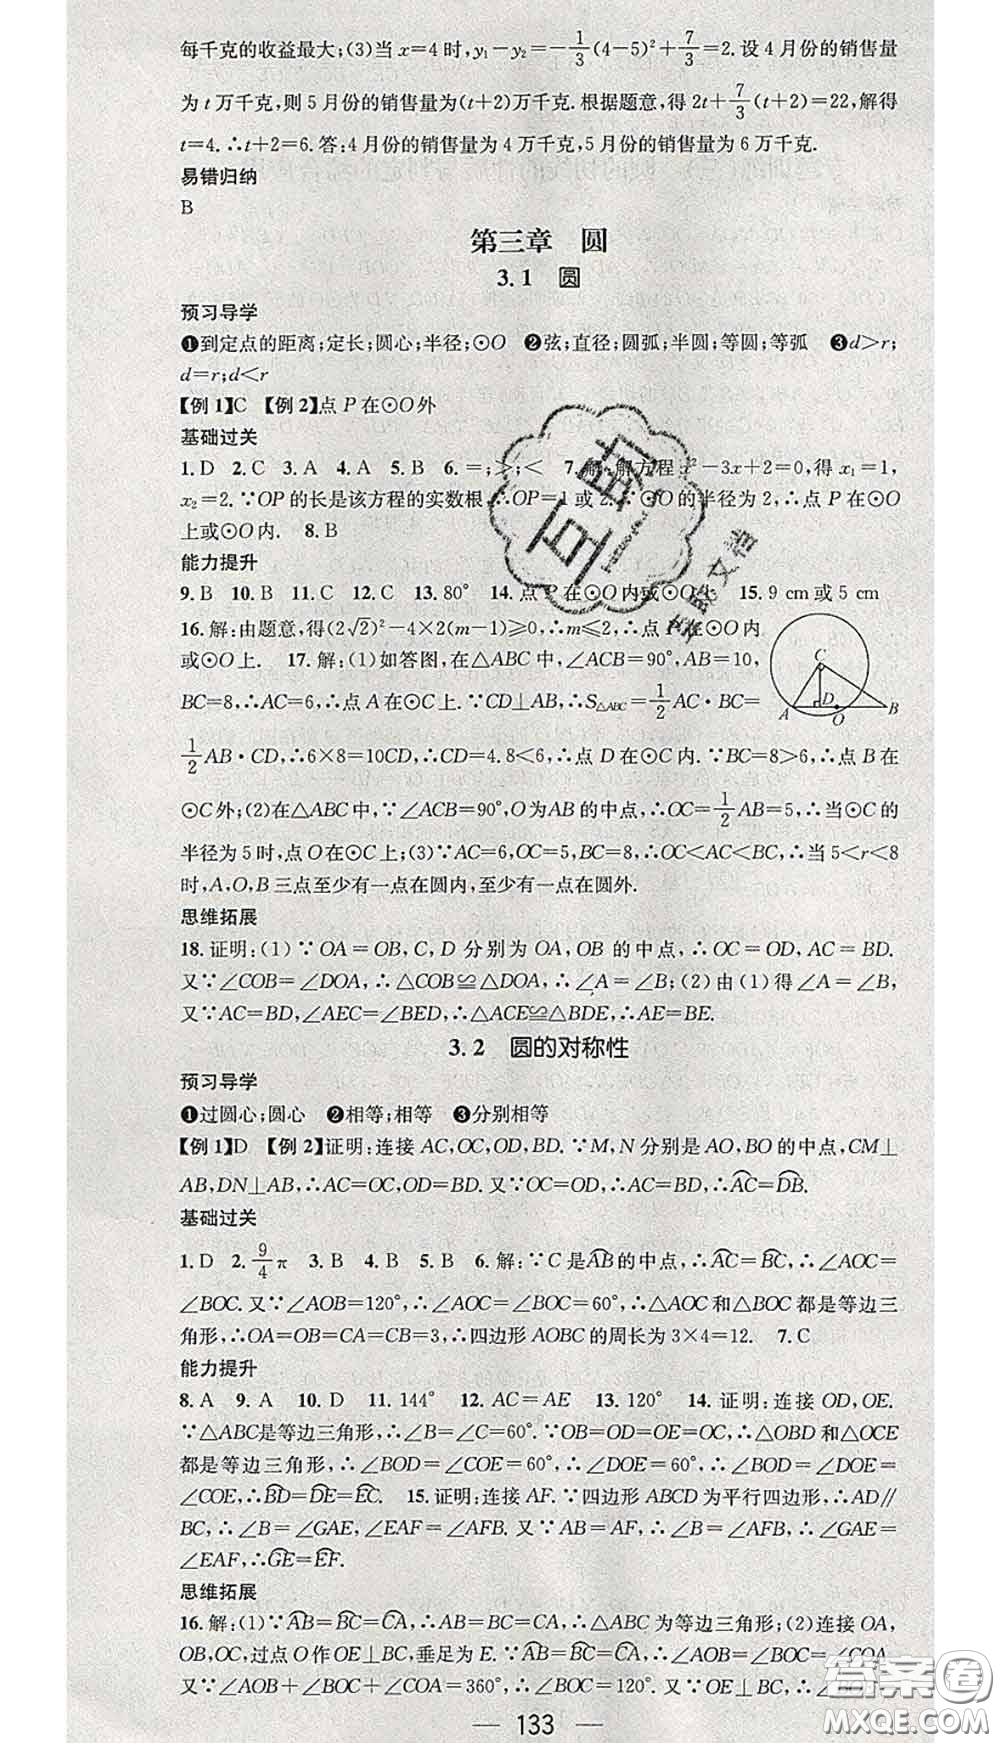 每千克的收益最大;(3)当x=4时,y₁-y₂=-1/3(4-5)²+7/3=2.设4月份的销售量
为t万千克,则5月份的销售量为(t+2)万千克.根据题意,得2t+7/3(t+2)=22,解得
t=4.∴t+2=6.答:4月份的销售量为4万千克,5月份的销售量为6万千克.
易错归纳
B
第三章 圆
3.1 圆
预习导学
❶到定点的距离;定长;圆心;半径;⊙O ❷弦;直径;圆弧;半圆;等圆;等弧 ❸d>r;
d=r;d<r
【例1】C 【例2】点P在⊙O外
基础过关
1.D 2.C 3.A 4.A 5.B 6.=;>;< 7.解:解方程x²-3x+2=0,得x₁=1,
x₂=2.∵OP的长是该方程的实数根,∴OP=1或2.∵⊙O的半径为2,∴点P在⊙O
上或⊙O内. 8.B
能力提升
9.B 10.B 11.C 12.C 13.80° 14.点P在⊙O内或⊙O上 15.9 cm或5 cm
16.解:由题意,得(2√2)²-4×2(m-1)≥0,∴m≤2,∴点P在⊙O内
或⊙O上. 17.解:(1)如答图,在△ABC中,∠ACB=90°,AB=10,
BC=8,∴AC=6,∴点A在⊙C上.∵CD⊥AB,∴S△ABC=1/2AC·BC=
C
A D O B
1/2AB·CD,∴6×8=10CD,∴CD=4.8<6,∴点D在⊙C内.∵BC=8>6,∴点B在
⊙C外;(2)在△ABC中,∵∠ACB=90°,O为AB的中点,∴OC=1/2AB=5,∴当⊙C的
半径为5时,点O在⊙C上;(3)∵AC=6,OC=5,BC=8,∴OC<AC<BC,∴当5<r<8
时,A,O,B三点至少有一点在圆内,至少有一点在圆外.
思维拓展
18.证明:(1)∵OA=OB,C,D分别为OA,OB的中点,∴OC=OD,AC=BD.
又∵∠COB=∠DOA,∴△COB≌△DOA,∴∠A=∠B;(2)由(1)得∠A=∠B,
又∵AC=BD,∠AEC=∠BED,∴△ACE≌△BDE,∴AE=BE.
3.2 圆的对称性
预习导学
❶过圆心;圆心 ❷相等;相等 ❸分别相等
【例1】D 【例2】证明:连接AC,OC,OD,BD.∵M,N分别是AO,BO的中点,CM⊥
AB,DN⊥AB,∴AC=OC,OD=BD.又∵OC=OD,∴AC=BD,∴A͡C=D͡B.
基础过关
1.D 2.9/4π 3.B 4.B 5.B 6.解:∵C是A͡B的中点,∴A͡C=B͡C,∴∠AOC=
∠BOC.又∵∠AOB=120°,∴∠AOC=∠BOC=60°,∴△AOC和△BOC都是等边三
角形,∴OA=OB=CA=CB=3,∴四边形AOBC的周长为3×4=12. 7.C
能力提升
8.A 9.A 10.D 11.144° 12.AC=AE 13.120° 14.证明:连接OD,OE.
∵△ABC是等边三角形,∴∠B=∠C=60°.∵OB=OD=OE=OC,∴△OBD和△OCE
都是等边三角形,∴∠BOD=∠COE=60°,∴∠DOE=60°,∴∠BOD=∠DOE=
∠COE,∴B͡D=D͡E=E͡C. 15.证明:连接AF.∵四边形ABCD为平行四边形,∴AD∥
BC,∴∠B=∠GAE,∠EAF=∠AFB.又∵AB=AF,∴∠B=∠AFB,∴∠GAE=
∠EAF,∴G͡E=E͡F.
思维拓展
16.解:(1)∵A͡B=B͡C=C͡A,∴AB=BC=CA,∴△ABC为等边三角形;(2)连接OA,
OB,OC,过点O作OE⊥BC,垂足为E.∵A͡B=B͡C=C͡A,∴∠AOB=∠BOC=∠COA.
又∵∠AOB+∠BOC+∠COA=360°,∴∠BOC=120°.又∵OE⊥BC,∴∠BOE=
133
答案圈
MXQE.COM